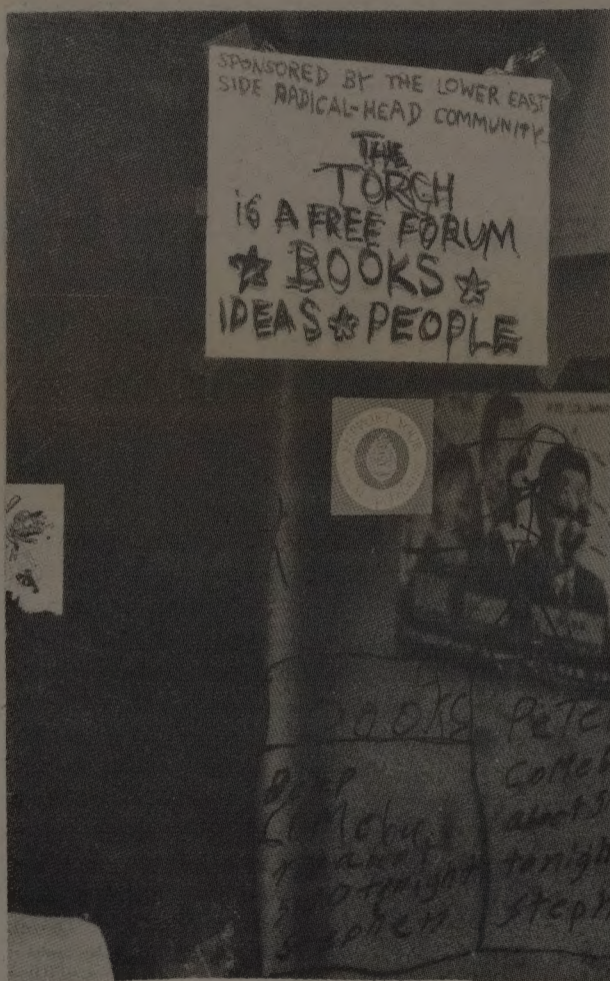 SPONSORED BY THE LOWER EAST
SIDE RADICAL-HEAD COMMUNITY
THE
TORCH
iS A FREE FORUM
★ BOOKS ★
IDEAS ★ PEOPLE
BOOKS
COME by
tonight
Stephen
PETE
COME
tonigh
Steph